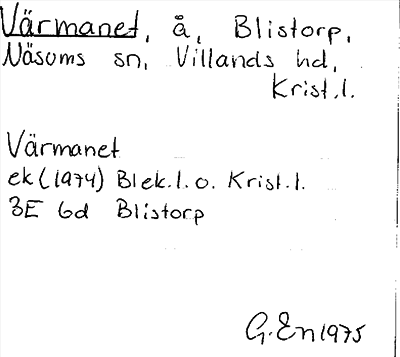 Värmanet, å, Blistorp,
Näsums sn, Villands hd,
Krist.l.
Värmanet
ek (1974) Blek.l. o. Krist.l.
3E 6d Blistorp
G. En 1975